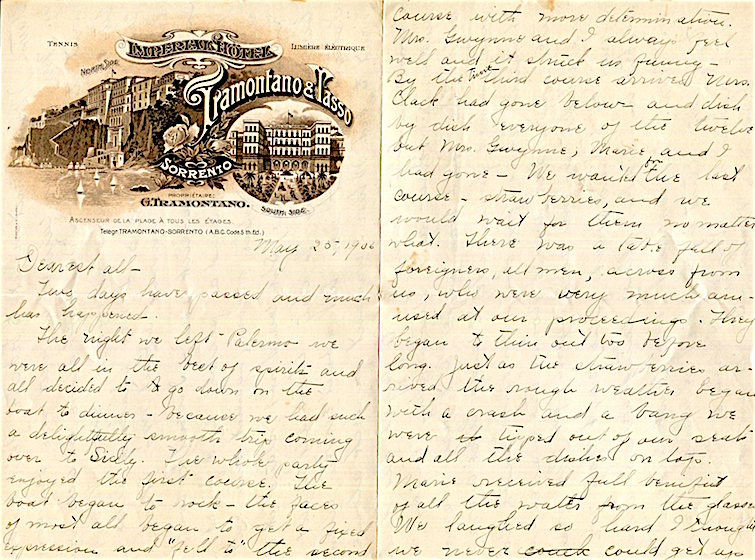 TENNIS
IMPERIAL HÔTEL
LUMIÈRE ÉLECTRIQUE
NORTH SIDE
Tramontano & Tasso
SORRENTO
PROPRIÉTAIRE:
G. TRAMONTANO.
SOUTH SIDE.
ASCENSEUR DE LA PLAGE À TOUS LES ÉTAGES.
Telegr. TRAMONTANO-SORRENTO (A.B.C. Code 5th. Ed.)
May 25, 1906
Dearest all-
Two days have passed and much
has happened.
The night we left Palermo we
were all in the best of spirits and
all decided to go down on the
boat to dinner - because we had such
a delightfully smooth trip coming
over to Sicily. The whole party
enjoyed the first course. The
boat began to rock - the faces
of most all began to get a fixed
expression and "fell to" the second
course with more determination.
Mrs. Gwynne and I always feel
well and it struck us funny -
By the time third course arrived Mrs.
Clack had gone below and dish
by dish everyone of the twelve
but Mrs. Gwynne, Marie, and I
had gone - We waited on the last
course - strawberries, and we
would wait for them no matter
what. There was a table full of
foreigners, all men, across from
us, who were very much am-
used at our proceedings. They
began to thin out too before
long. Just as the strawberries ar-
rived the rough weather began
with a crash and a bang we
were tipped out of our seat
and all the dishes on top.
Marie received full benifit
of all the water from the glasses
We laughed so hard I thought
we never couch could get up